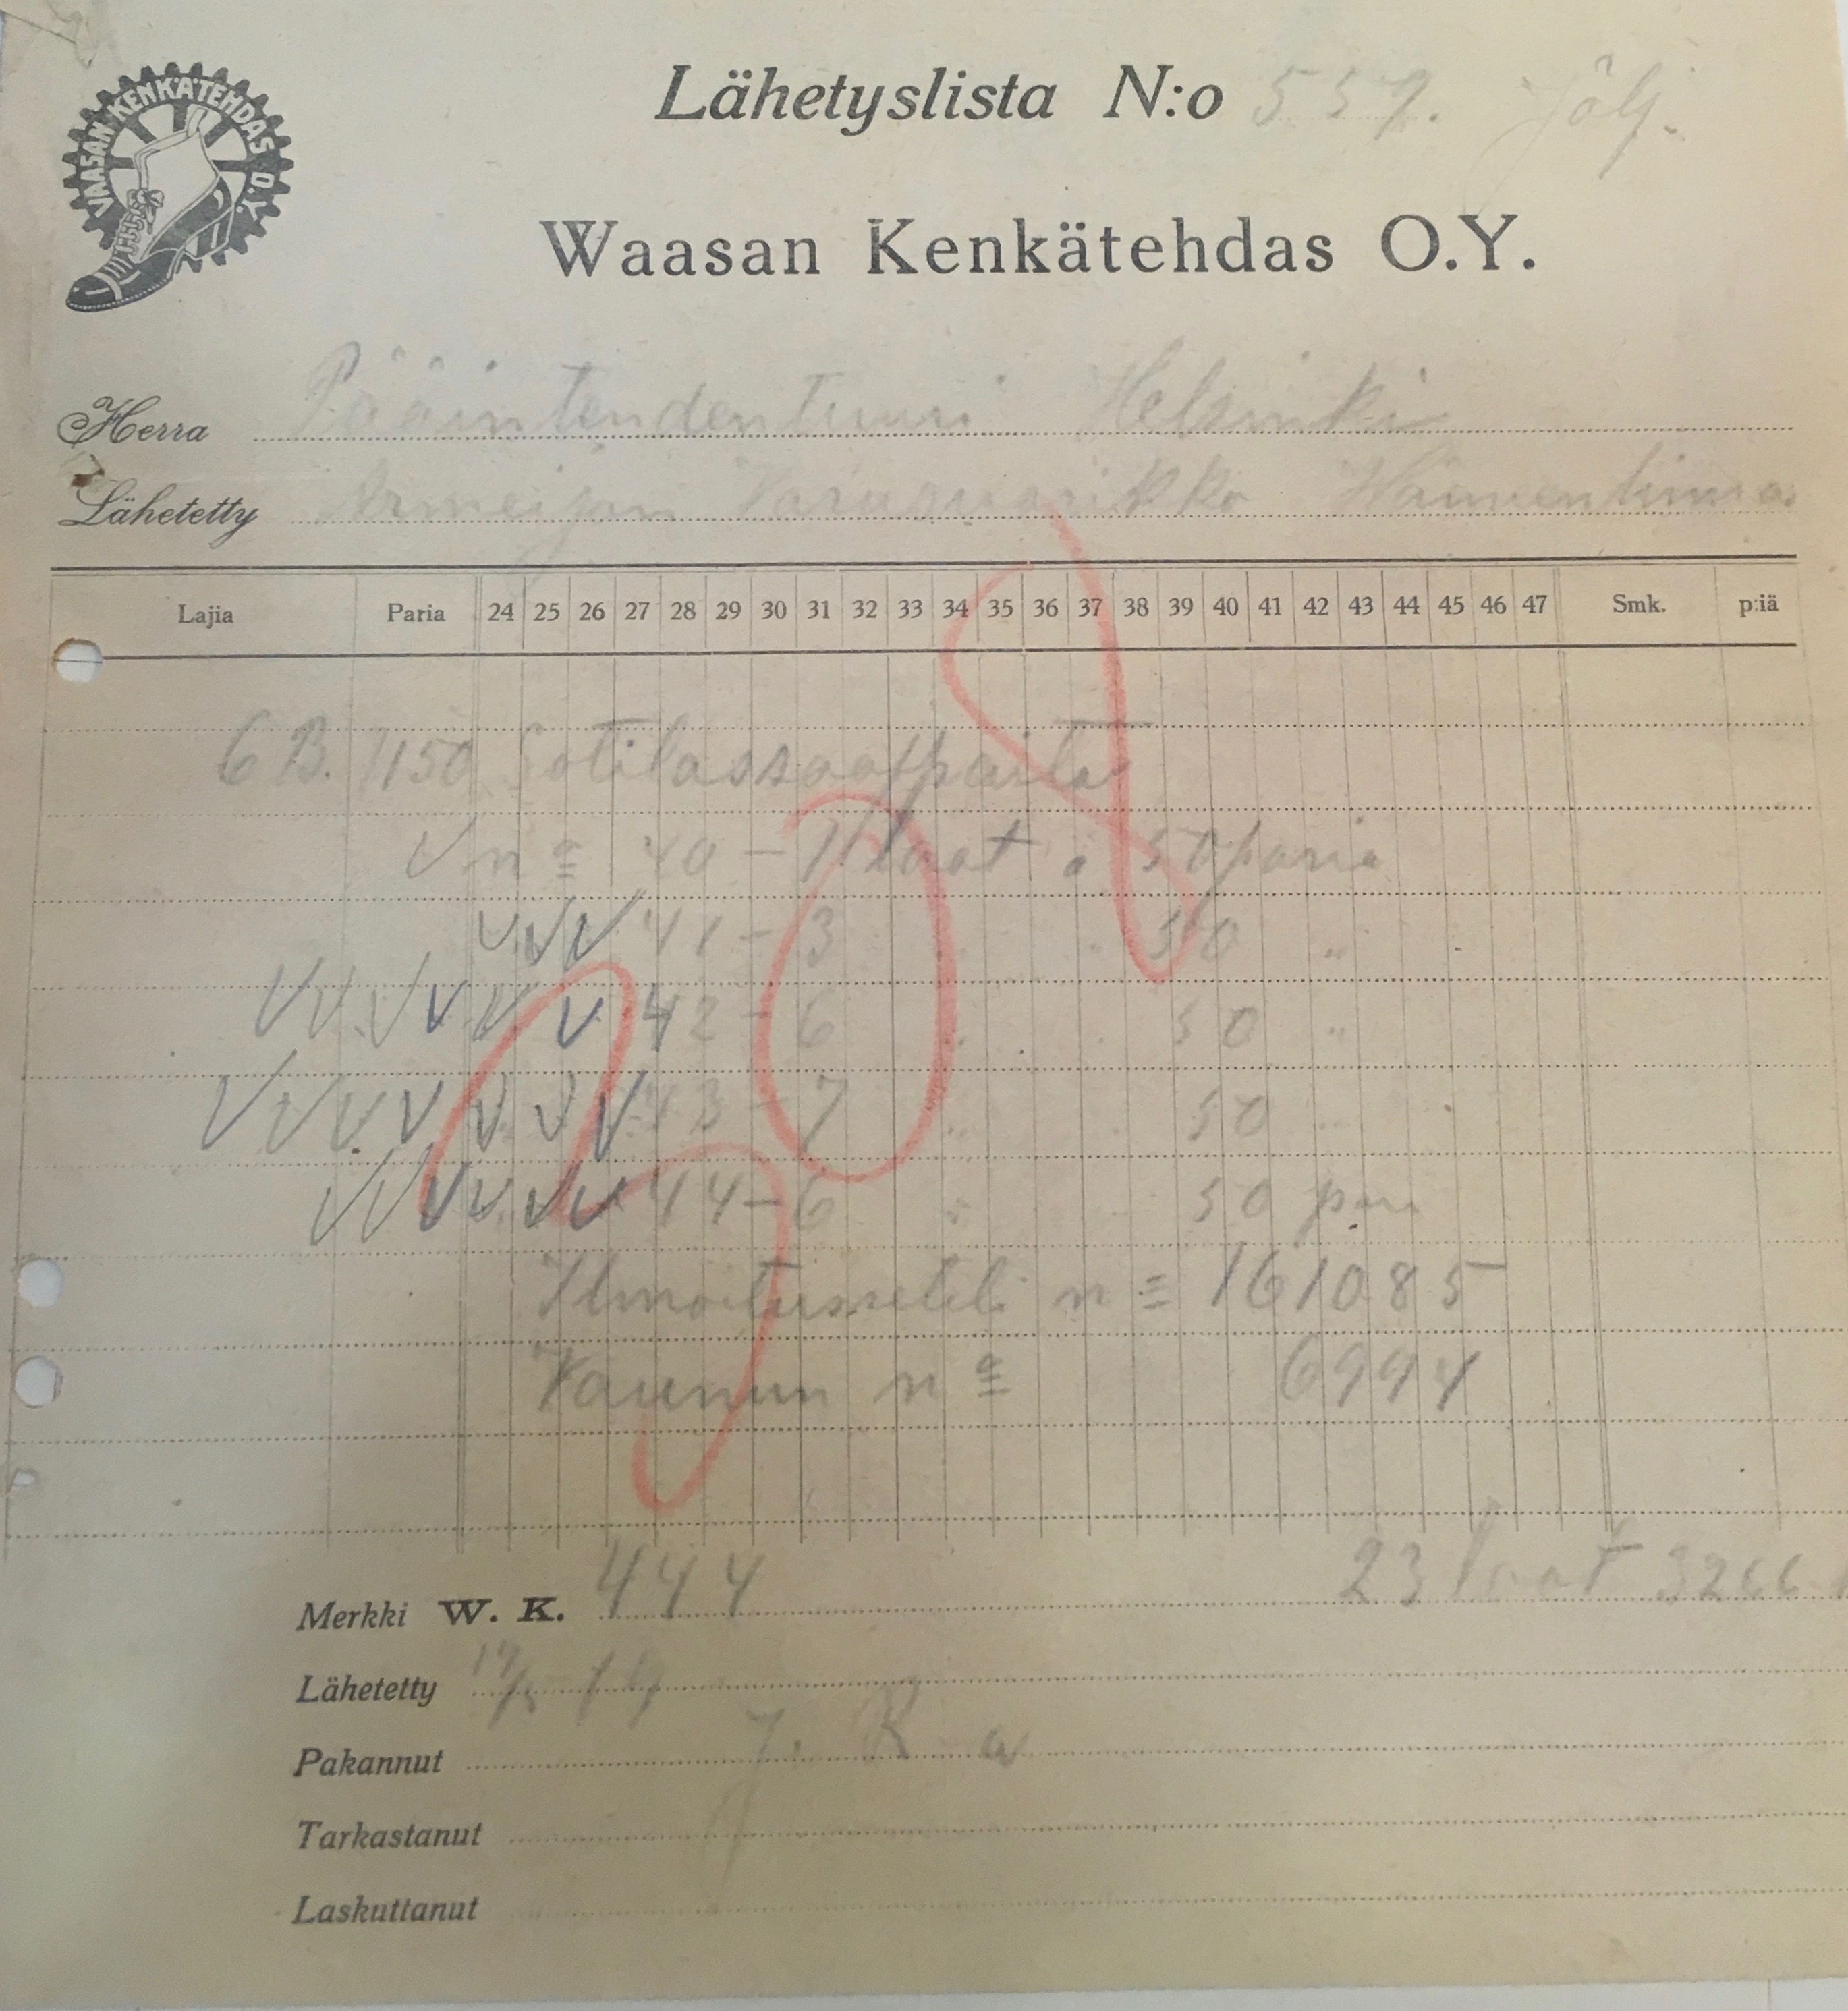 VAASAN KENKÄTEHDAS O.Y.
Lähetyslista N:o 559. Jälj.
Waasan Kenkätehdas O.Y.
Herra Pääintendentuuri Helsinki
Lähetetty Armeijan Varusvarikko Hämeenlinna
Lajia Paria 24 25 26 27 28 29 30 31 32 33 34 35 36 37 38 39 40 41 42 43 44 45 46 47 Smk. p:iä
6 B. 1150 Sotilassaappaita
V no 40 - 1 laat. à 50 paria
VVV 41 - 3 " " 50 "
VVVVVV 42 - 6 " " 50 "
VVVVVVV 43 - 7 " " 50 "
VVVVVV 44 - 6 " " 50 par.
Ilmoitusseteli no 161085
Vaunun no 6994
Merkki W. K. 444 23 laat
Lähetetty 19
Pakannut J. R-a
Tarkastanut
Laskuttanut